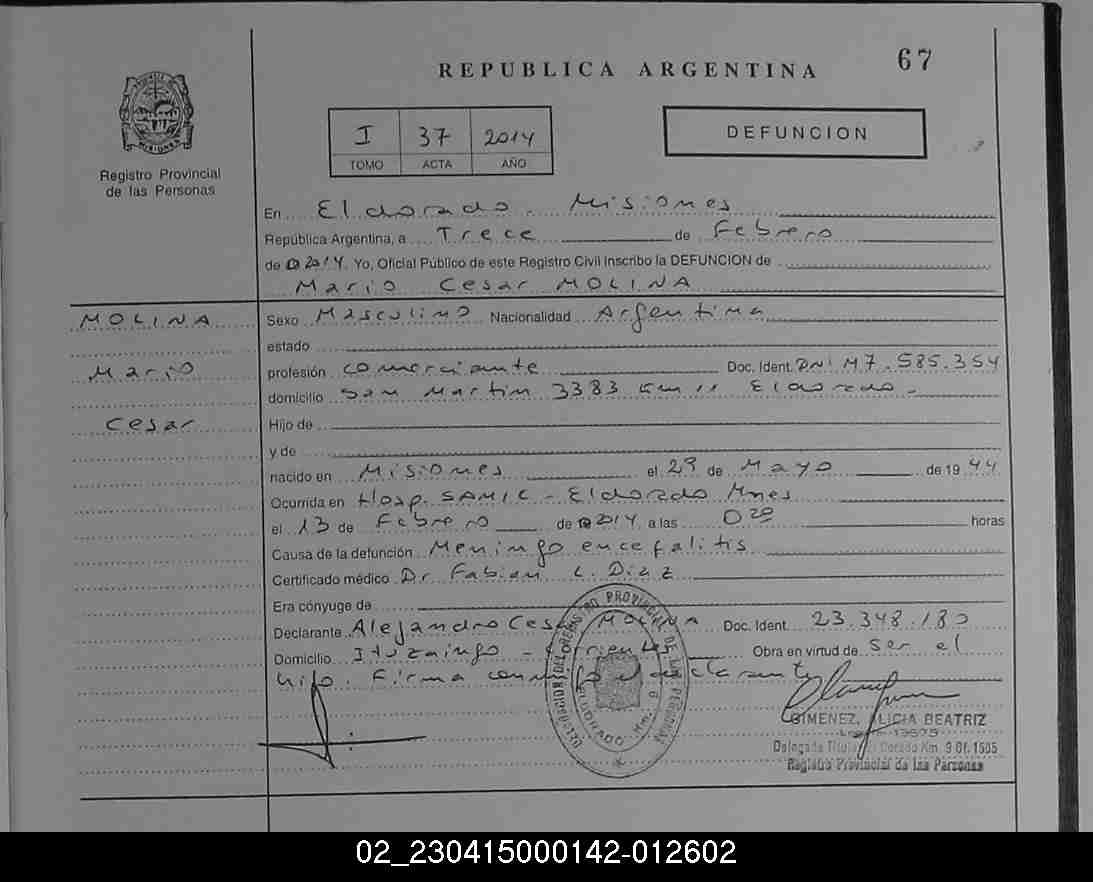 67
REPUBLICA ARGENTINA
I 37 2014
TOMO ACTA AÑO
DEFUNCION
MISIONES
Registro Provincial
de las Personas
En Eldorado. Misiones
República Argentina, a Trece de Febrero
de 2014. Yo, Oficial Público de este Registro Civil inscribo la DEFUNCION de
Mario Cesar MOLINA
MOLINA
Mario
Cesar
Sexo Masculino Nacionalidad Argentina
estado
profesión comerciante Doc. Ident. DNI M7.585.354
domicilio San Martin 3383 km 11 Eldorado.
Hijo de
y de
nacido en Misiones el 29 de Mayo de 1944
Ocurrida en Hosp. SAMIC - Eldorado Mnes
el 13 de Febrero de 2014 a las 0 horas
Causa de la defunción Meningo encefalitis
Certificado médico Dr Fabian L. Diaz
Era cónyuge de
Declarante Alejandro Cesar MOLINA Doc. Ident. 23.348.180
Domicilio Ituzaingo - Corrientes Obra en virtud de Ser el
hijo. Firma conmigo el declarante
REGISTRO PROVINCIAL DE LAS PERSONAS
ELDORADO Km. 9
GIMENEZ, ALICIA BEATRIZ
Registro Provincial de las Personas
02_230415000142-012602